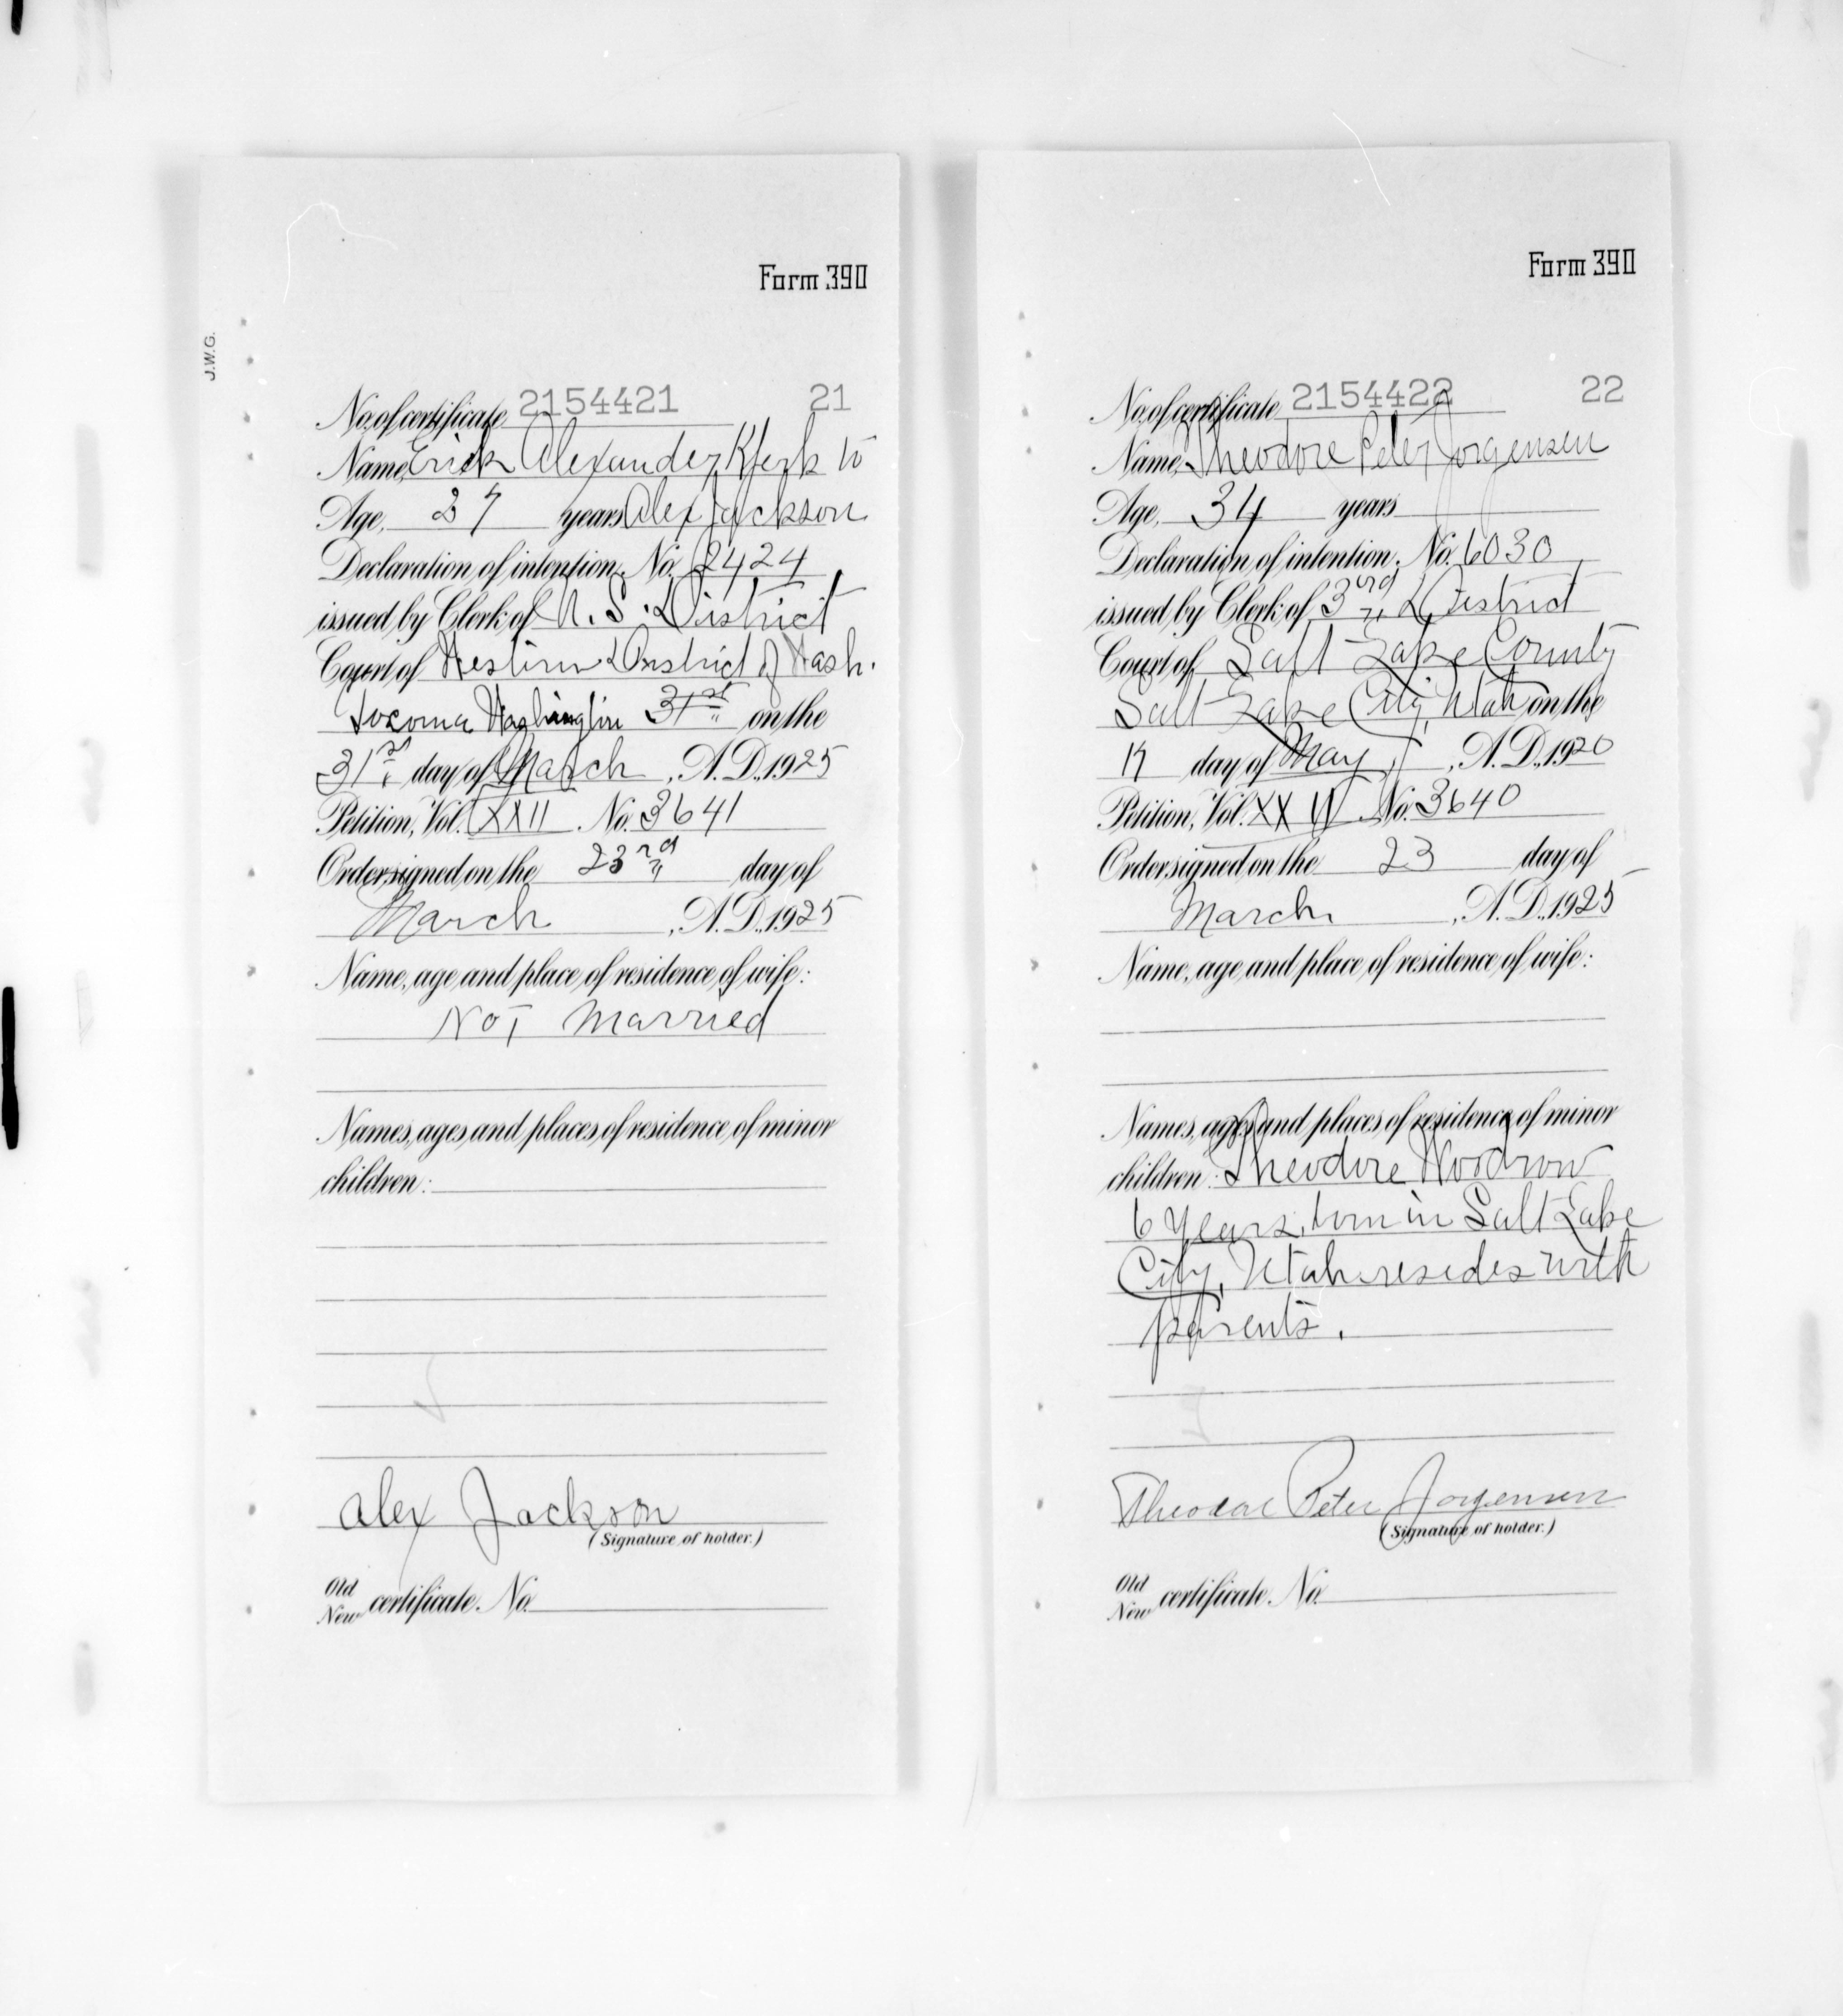 Form 390
J.W.G.
No. of certificate 2154421 21
Name, Erick Alexander to
Age, 37 years Alex Jackson
Declaration of intention, No. 2424
issued by Clerk of U. S. District
Court of Western District of Wash.
Tacoma Washington 31st on the
31st day of March, A.D., 1925
Petition, Vol. XXII No. 3641
Order signed on the 23rd day of
March, A.D., 1925
Name, age and place of residence of wife:
Not Married
Names, ages and places of residence of minor
children:
Alex Jackson
(Signature of holder.)
Old
New certificate No.
Form 390
No. of certificate 2154422 22
Name, Theodore Peter Jorgensen
Age, 34 years
Declaration of intention, No. 6030
issued by Clerk of 3rd District
Court of Salt Lake County
Salt Lake City, Utah on the
day of May, A.D., 1920
Petition, Vol. No. 3640
Order signed on the 23 day of
March, A.D., 1925
Name, age and place of residence of wife:
Names, ages and places of residence of minor
children: Theodore Woodrow
6 years, born in Salt Lake
City, Utah resides with
parents.
Theodore Peter Jorgensen
(Signature of holder.)
Old
New certificate No.